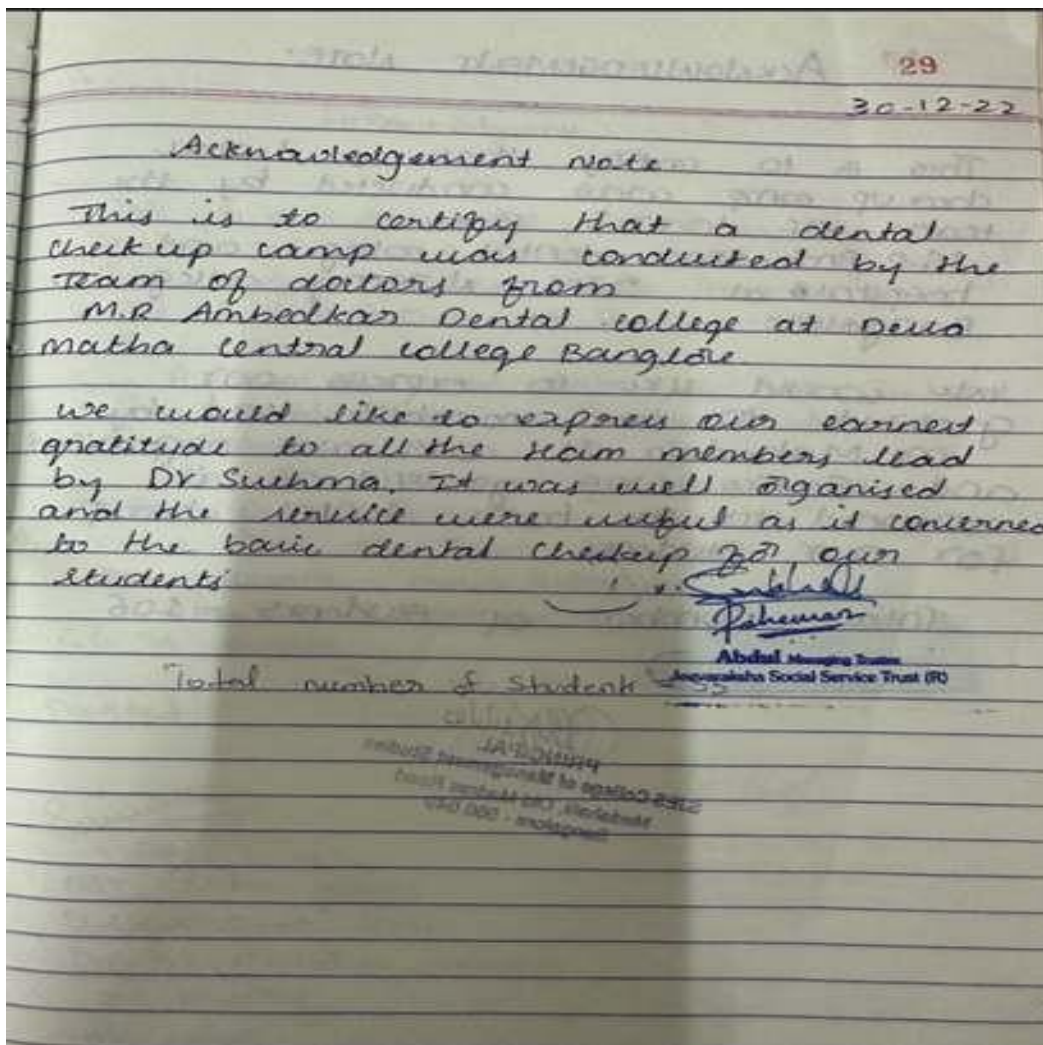 29
30-12-22
Acknowledgement Note
This is to certify that a dental
check up camp was conducted by the
Team of doctors from
M.R Ambedkar Dental college at Deva
matha central college Banglore
we would like to express our earnest
gratitude to all the team members lead
by Dr Sushma. It was well organised
and the service were useful as it concerned
to the basic dental checkup for our
students
Abdul Managing Trustee
Jeevaraksha Social Service Trust (R)
Total number of Student
PRINCIPAL
SJES College of Management Studies
Old Madras Road